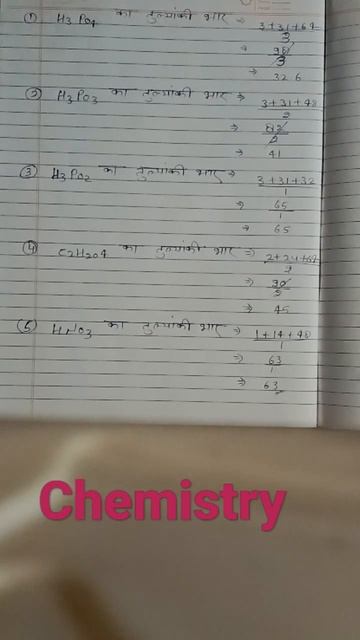 ① H3PO4 का तुल्यांकी भार → 3+31+64
3
→ 98
3
→ 32 6
② H3PO3 का तुल्यांकी भार → 3+31+48
2
→ 82
2
→ 41
③ H3PO2 का तुल्यांकी भार → 3+31+32
1
→ 65
1
→ 65
④ C2H2O4 का तुल्यांकी भार ⇒ 2+24+64
2
⇒ 90
2
⇒ 45
⑤ HNO3 का तुल्यांकी भार ⇒ 1+14+48
1
⇒ 63
1
⇒ 63
Chemistry